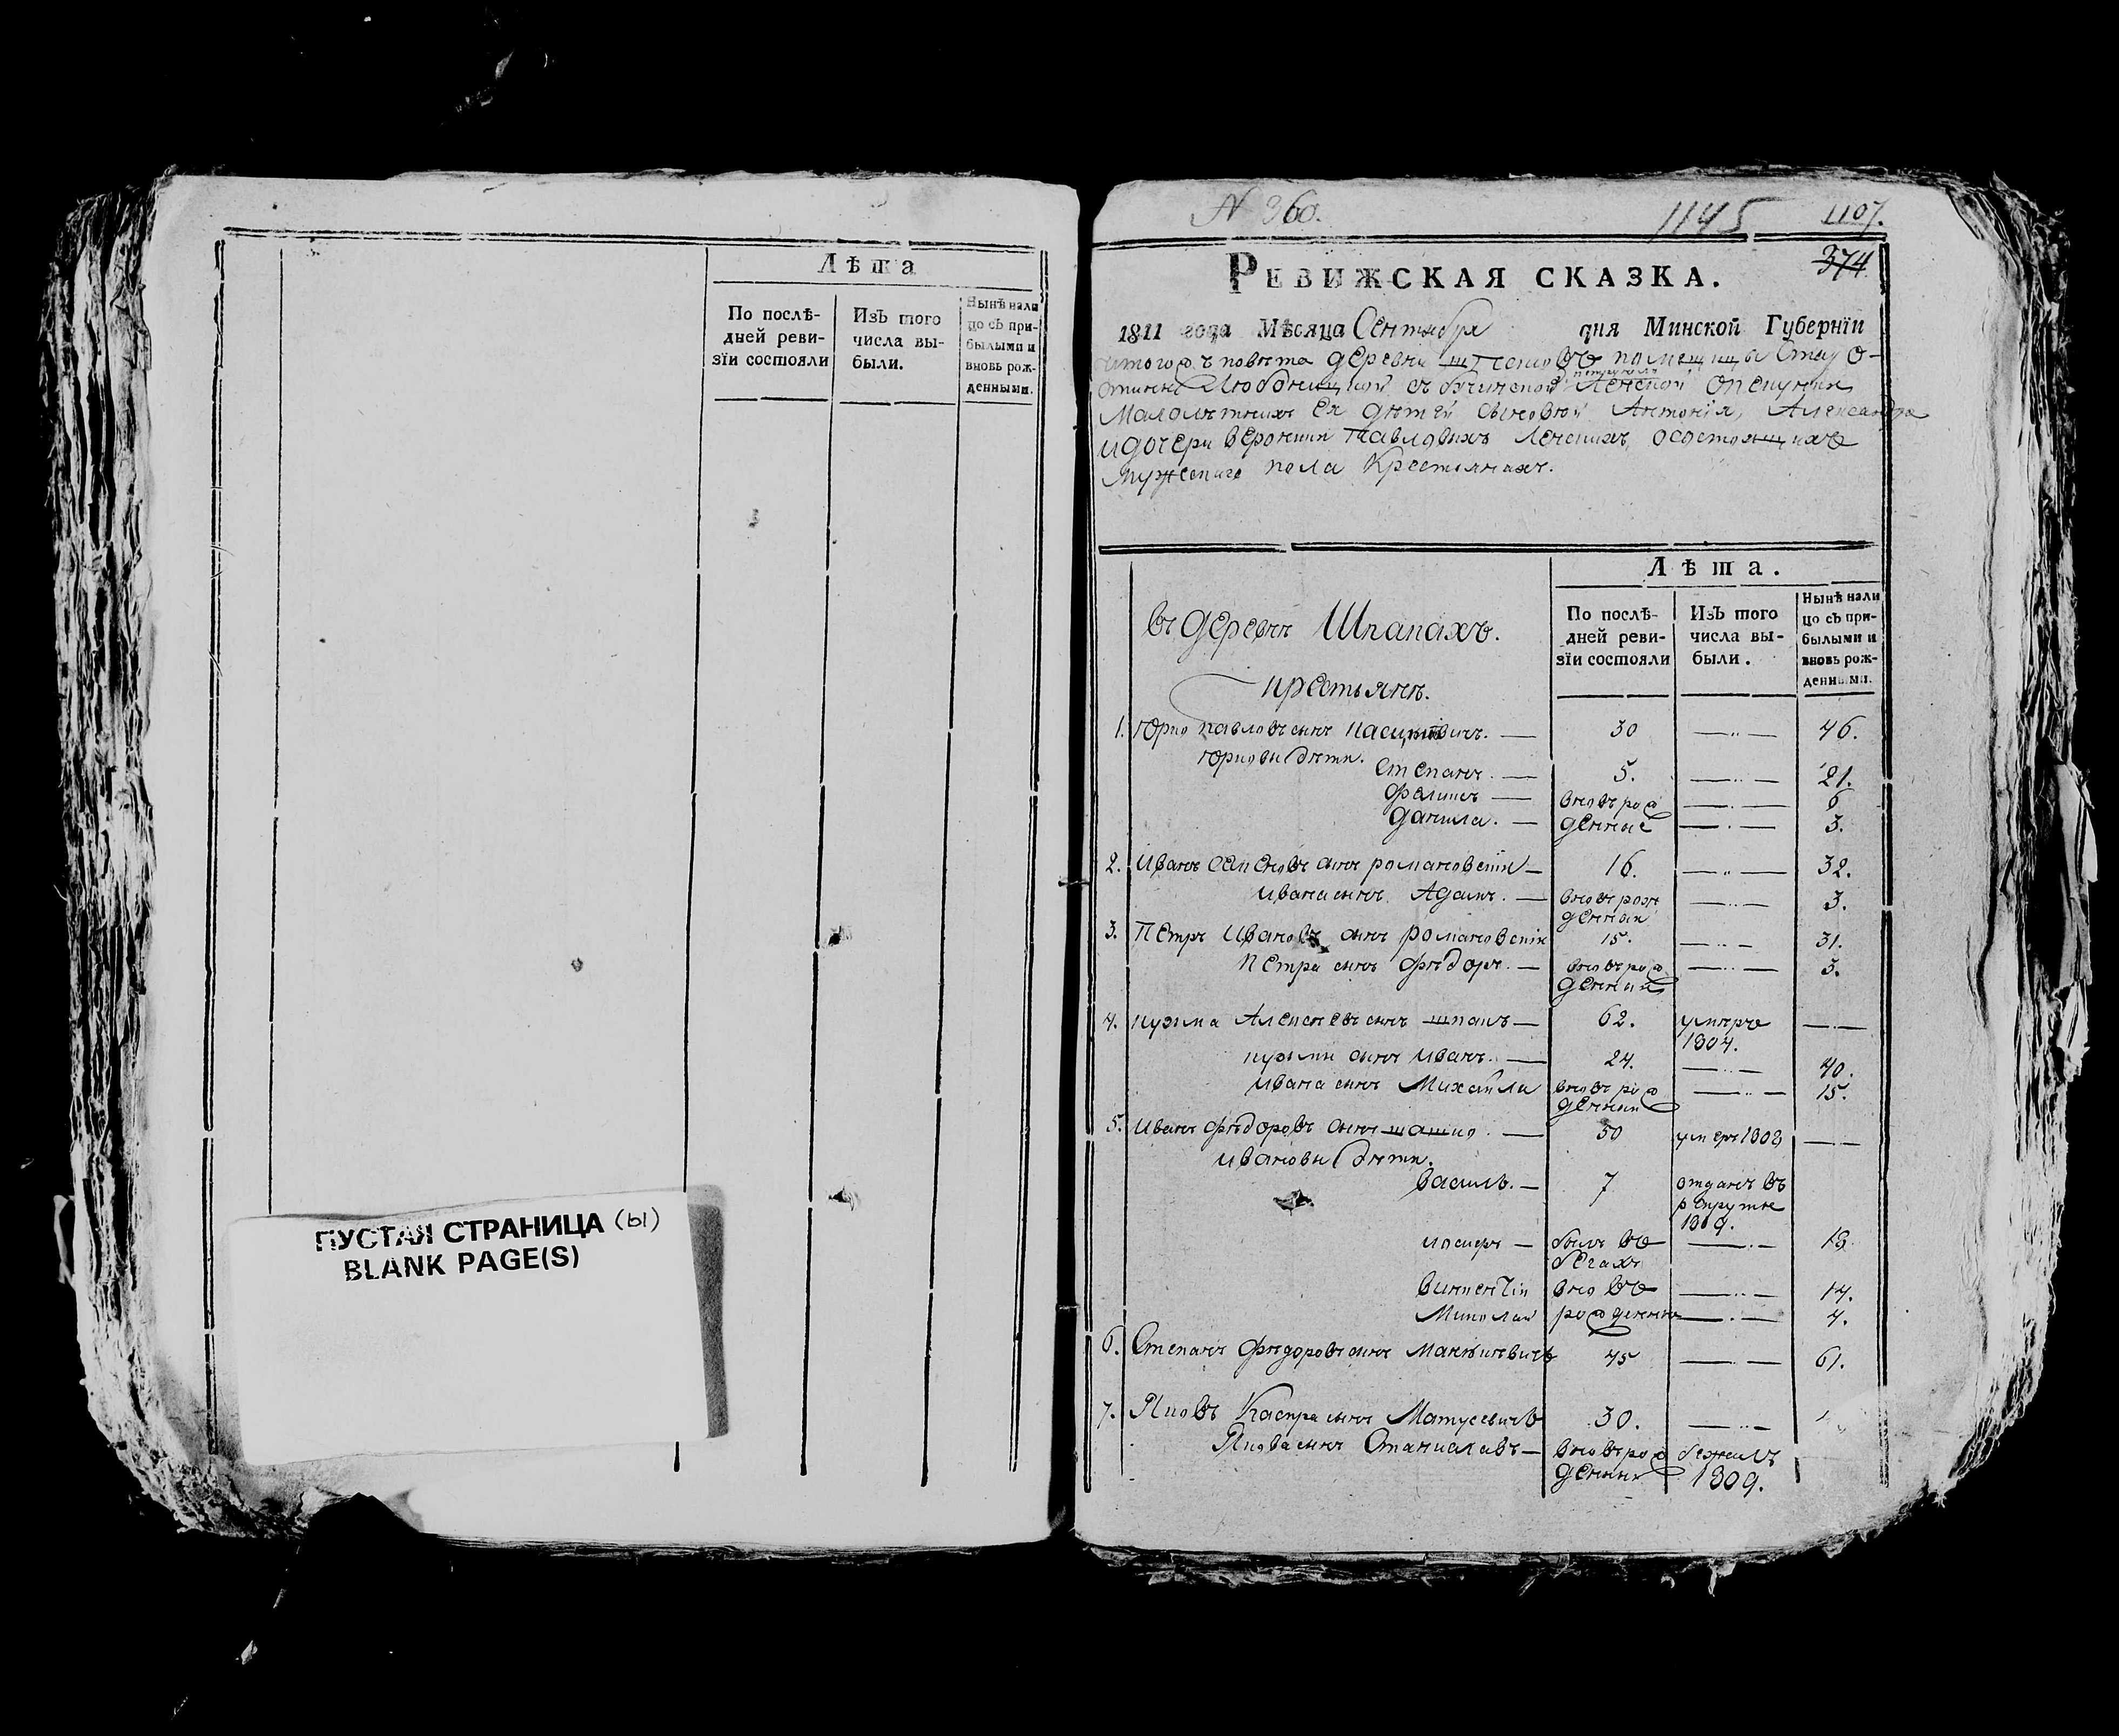 Лѣта
По послѣ-
дней реви-
зїи состояли
ИзЪ того
числа вы-
были.
Нынѣ нали
цо сЪ при-
былыми и
вновь рож-
денными.
ПУСТАЯ СТРАНИЦА (ы)
BLANK PAGE(S)
N 360.
1145
1107.
374
РЕВИЖСКАЯ СКАЗКА.
1811 года Мѣсяца Сентября дня Минской Губернїи
повѣта деревни помещицы
опекунки
Малолѣтнихъ Ея дѣтей сыновей Антонїя, Александра
и дочери вероники павловыхъ Ленскихъ, осостоящихъ
мужескаго пола Крестьянахъ.
Лѣта.
По послѣ-
дней реви-
зїи состояли
ИзЪ того
числа вы-
были.
Нынѣ нали
цо сЪ при-
былыми и
вновь рож-
денными.
въ деревни Шпакахъ.
крестьянъ.
1. Юрко павловъ сынъ 30 46.
юрковы дѣти.
степанъ. 5. 21.
филипъ вновь рож 6
данила. денные 3.
2. Иванъ сынъ романовскїи 16. 32.
ивана сынъ Адамъ. вновь рож 3.
денныи
3. Петръ Ивановъ сынъ романовскїи 15. 31.
петра сынъ фѣдоръ. вновь рож 3.
денныи
4. кузма Алексѣевъ сынъ шпакъ 62. умеръ
1804.
кузмы сынъ иванъ. 24. 40.
ивана сынъ Михайла вновь рож 15.
денныи
5. иванъ фѣдоровъ сынъ шашко. 50 умеръ 1808
ивановы дѣти.
василь. 7 отданъ въ
рекруты
1809.
иосифъ былъ въ 18.
бегахъ
винкентїи вновь 14.
Миколай рожденные 4.
6. Степанъ фѣдоровъ сынъ 45 61.
7. Яковъ Каспра сынъ Матусевичъ 30.
Якова сынъ Станиславъ вновь рож бежалъ
денныи 1809.